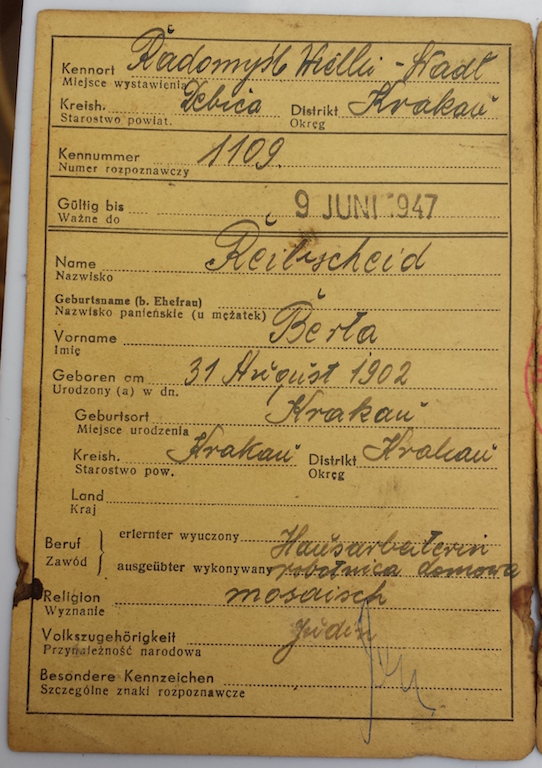 Kennort Radomyśl Wielki - Stadt
Miejsce wystawienia
Kreish. Debica Distrikt Krakau
Starostwo powiat. Okręg
Kennummer 1109.
Numer rozpoznawczy
Gültig bis 9 JUNI 1947
Ważne do
Name Reibscheid
Nazwisko
Geburtsname (b. Ehefrau)
Nazwisko panieńskie (u mężatek)
Vorname Berta
Imię
Geboren am 31 August 1902
Urodzony (a) w dn.
Geburtsort Krakau
Miejsce urodzenia
Kreish. Krakau Distrikt Krakau
Starostwo pow. Okręg
Land
Kraj
Beruf erlernter wyuczony Hausarbaterin
Zawód ausgeübter wykonywany robotnica domowa
Religion mosaisch
Wyznanie
Volkszugehörigkeit Jüdin
Przynależność narodowa
Besondere Kennzeichen
Szczególne znaki rozpoznawcze